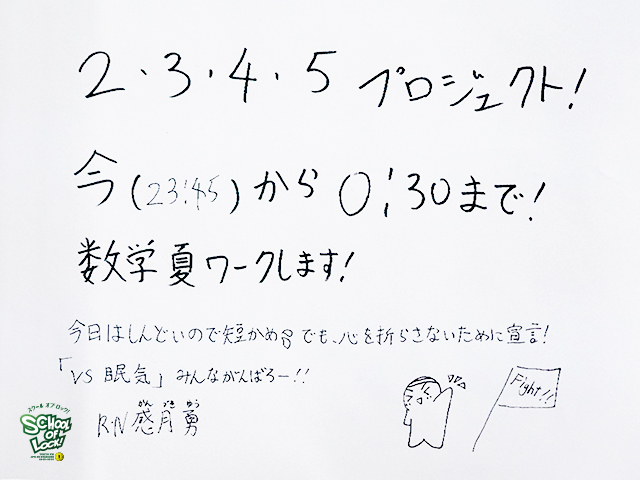 2・3・4・5 プロジェクト!
今(23:45)から0:30まで!
数学夏ワークします!
今日はしんどいので短かめ でも、心を折らさないために宣言!
「VS 眠気」みんながんばろー!!
R.N 感月勇
かん づき ゆう
Fight!!
スクール オブ ロック!
SCHOOL OF LOCK!